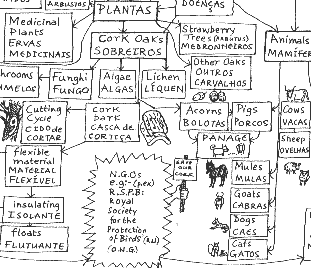 ARBUSTOS
PLANTAS
DOENÇAS
Medicinal
Plants
ERVAS
MEDICINAIS
Cork Oaks
SOBREIROS
Strawberry
Trees (Arbutus)
MEDRONHEIROS
Animals
MAMÍFER
hrooms
UMELOS
Funghi
FUNGO
Algae
ALGAS
Lichen
LÍQUEN
Other Oaks
OUTROS
CARVALHOS
Cutting
Cycle
CICLO de
CORTAR
CORK
BARK
CASCA de
CORTIÇA
Acorns
BOLOTAS
Pigs
PORCOS
Cows
VACAS
PANAGE
Sheep
OVELHAS
flexible
material
MATERIAL
FLEXÍVEL
SAVE
OUR
CORK
N.G.Os
e.g:- (p.ex)
R.S.P.B:
Royal
Society
for the
Protection
of Birds (R.U)
(O.N.G.)
Mules
MULAS
Goats
CABRAS
insulating
ISOLANTE
Dogs
CÃES
floats
FLUTUANTE
Cats
GATOS